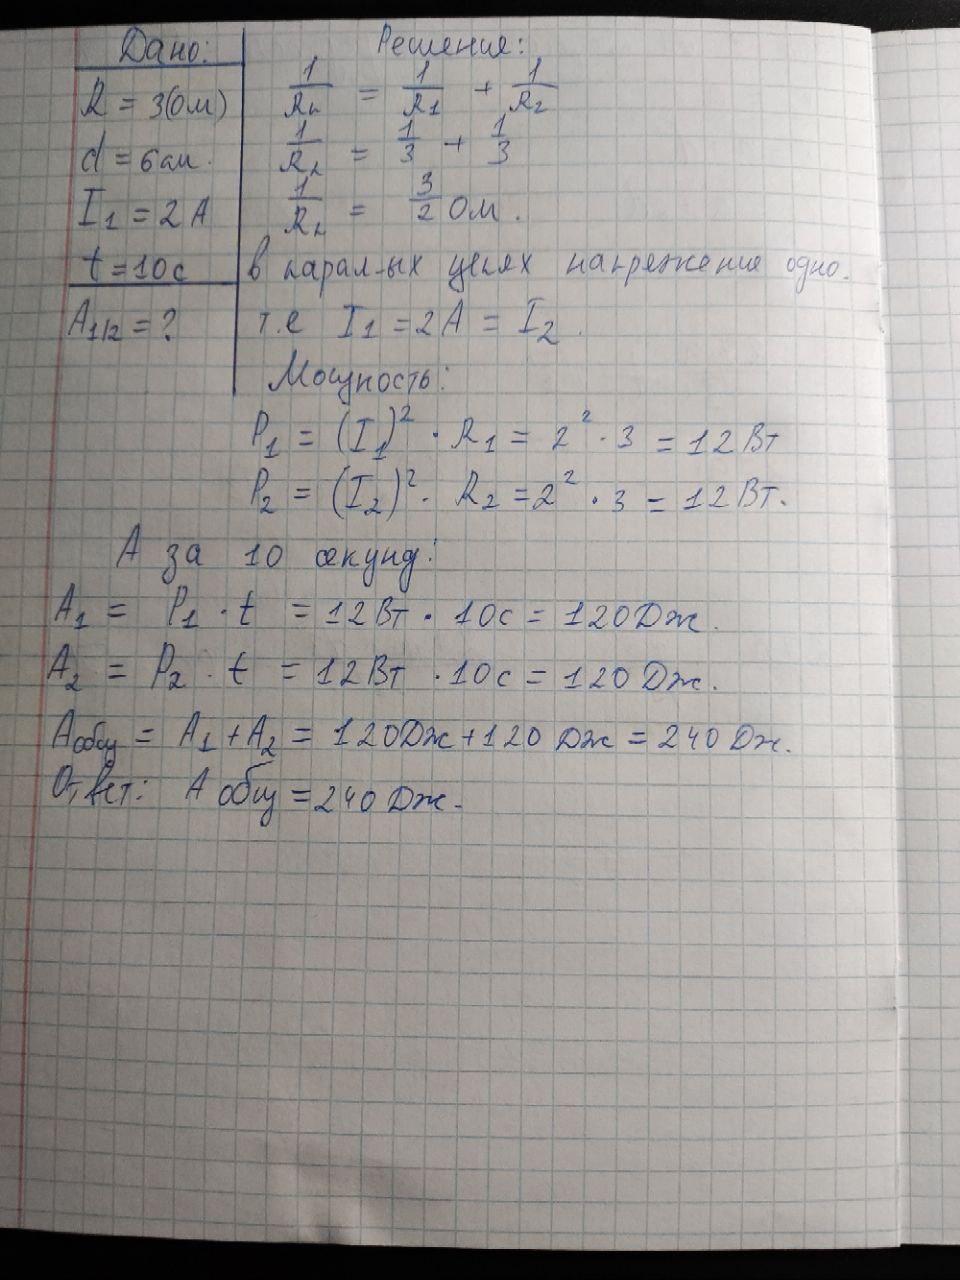 Дано:
R = 3(Ом)
d = 6 см.
I₁ = 2 А
t = 10с
A₁/₂ = ?
Решение:
1/Rₙ = 1/R₁ + 1/R₂
1/R₂ = 1/3 + 1/3
1/R₂ = 3/2 Ом.
В парал-ых цепях напряжение одно.
т.е I₁ = 2А = I₂.
Мощность:
P₁ = (I₁)² · R₁ = 2² · 3 = 12 Вт
P₂ = (I₂)² · R₂ = 2² · 3 = 12 Вт.
А за 10 секунд:
A₁ = P₁ · t = 12 Вт · 10с = 120 Дж.
A₂ = P₂ · t = 12 Вт · 10с = 120 Дж.
Aобщ = A₁ + A₂ = 120 Дж + 120 Дж = 240 Дж.
Ответ: A общ = 240 Дж.